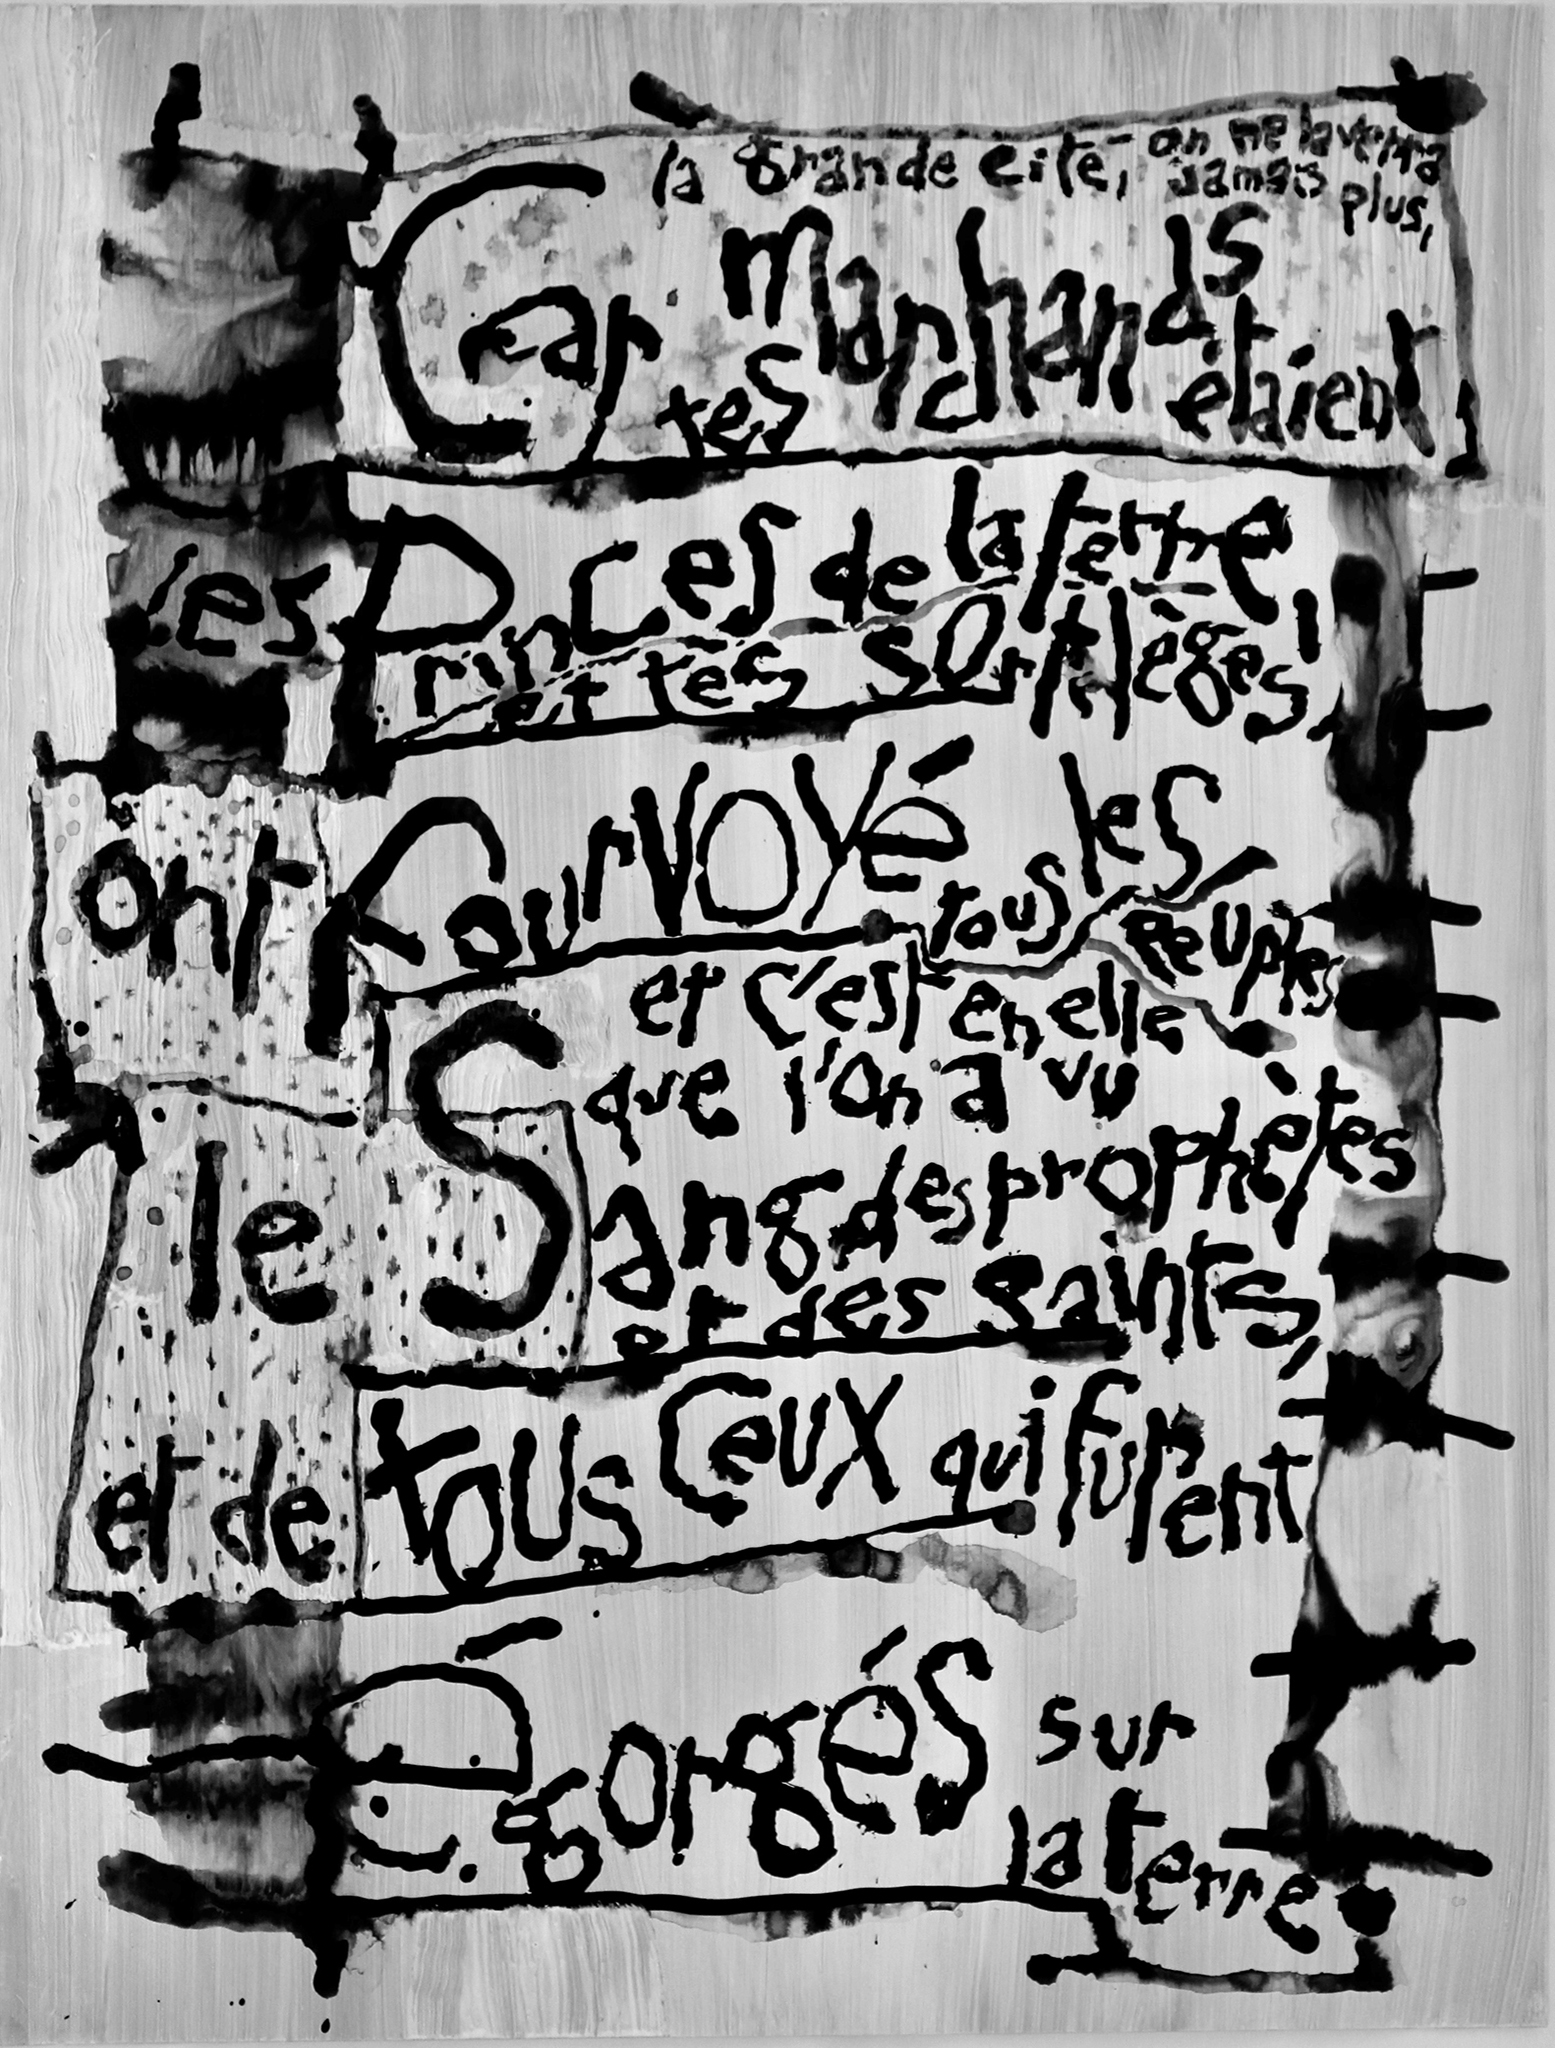 la grande cité, on ne la verra
jamais plus,
Car tes marchands étaient
les Princes de la terre,
et tes sortilèges,
ont fourvoyé tous les peuples
et c'est en elle
que l'on a vu
le Sang des prophètes
et des saints,
et de tous ceux qui furent
Égorgés sur
la terre.